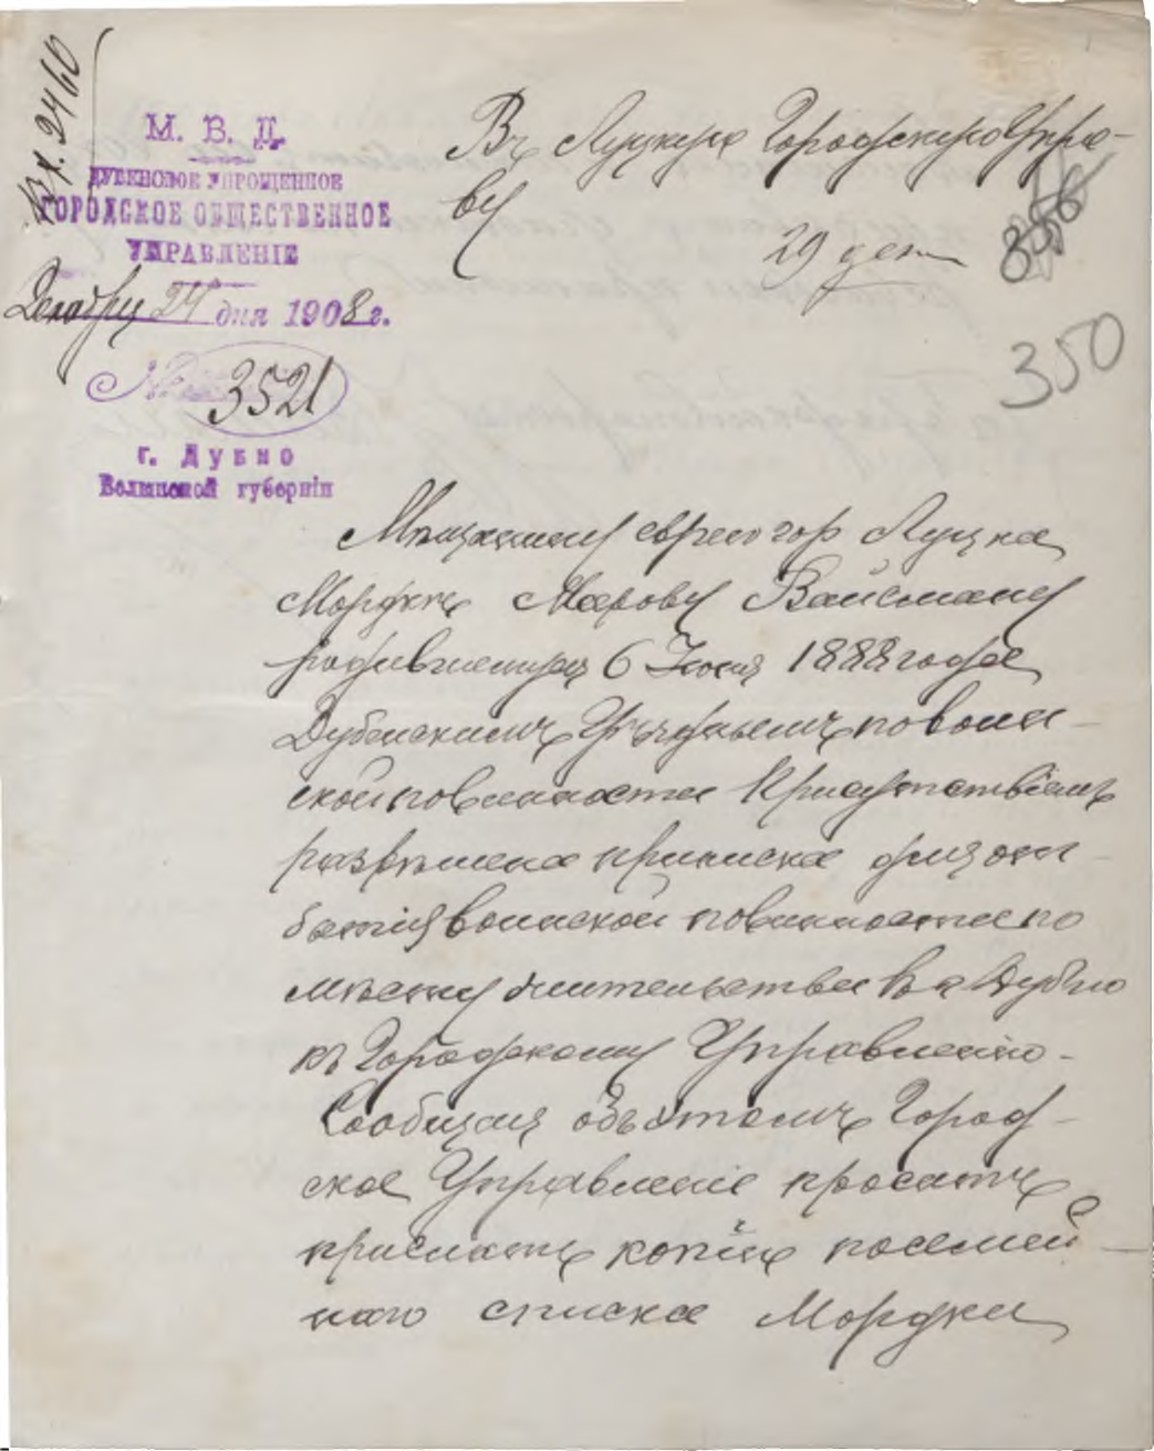 Вх. 2460
М. В. Д.
ДУБЕНСКОЕ УПРОЩЕННОЕ
ГОРОДСКОЕ ОБЩЕСТВЕННОЕ
УПРАВЛЕНІЕ
Декабря 24 дня 1908 г.
№ 3521
г. Дубно
Волынской губерніи
Въ Луцкую Городскую Упра-
ву
29 дек
350
Мѣщанину еврею гор Луцка
Мордке Меерову Вайсману
родившемуся 6 Іюня 1888 года
Дубенскимъ Уѣзднымъ по воин-
ской повинности Присутствіемъ
разрѣшена приписка для отп-
бытія воинской повинности по
мѣсту жительства въ г Дубно
къ Городскому Управленію.
Сообщая объ этомъ Город-
ское Управленіе проситъ
прислать копію посемей-
наго списка Мордки